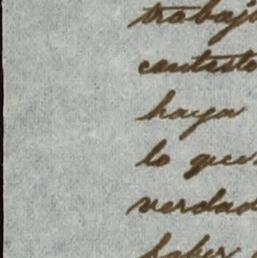 trabajo
contesto
haya
lo que
verdad
saber